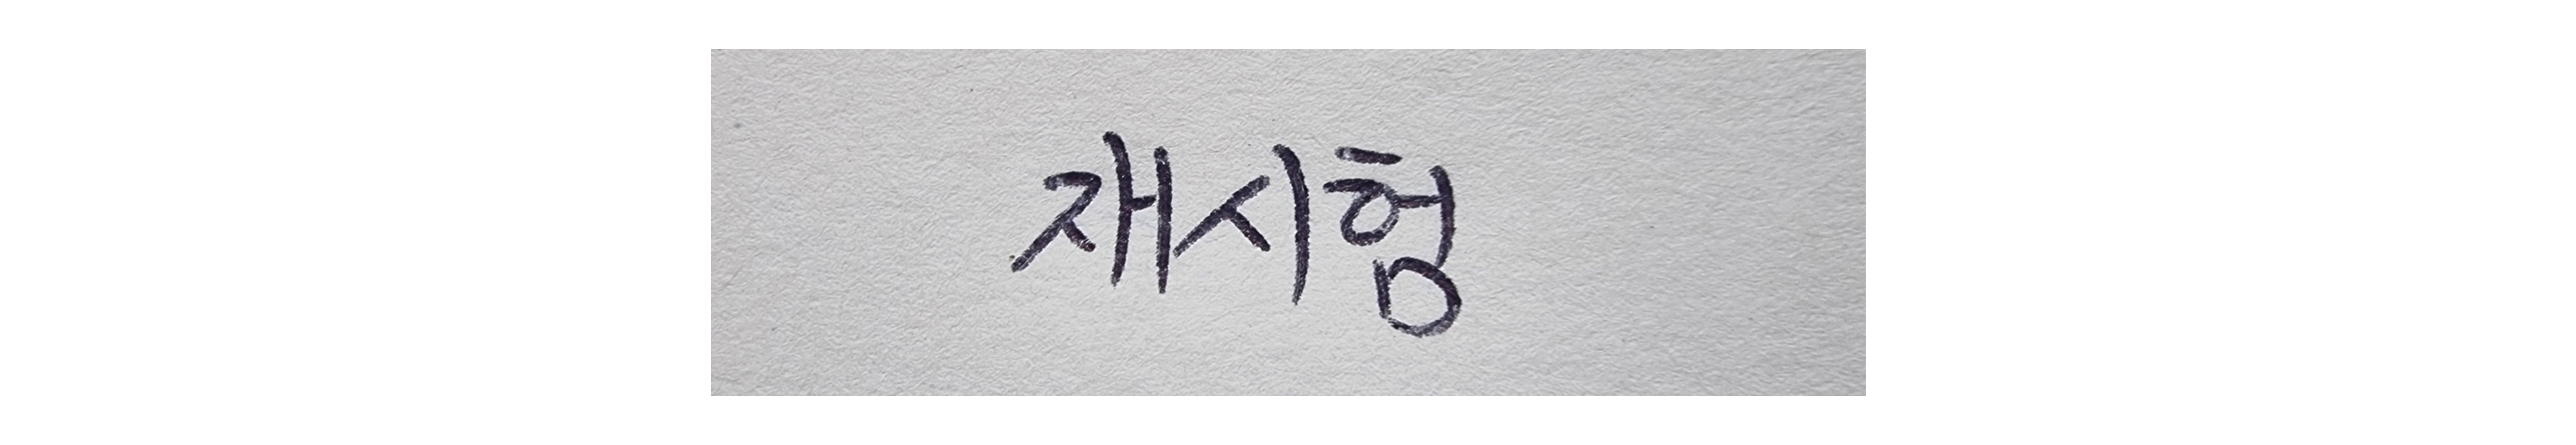 재시험